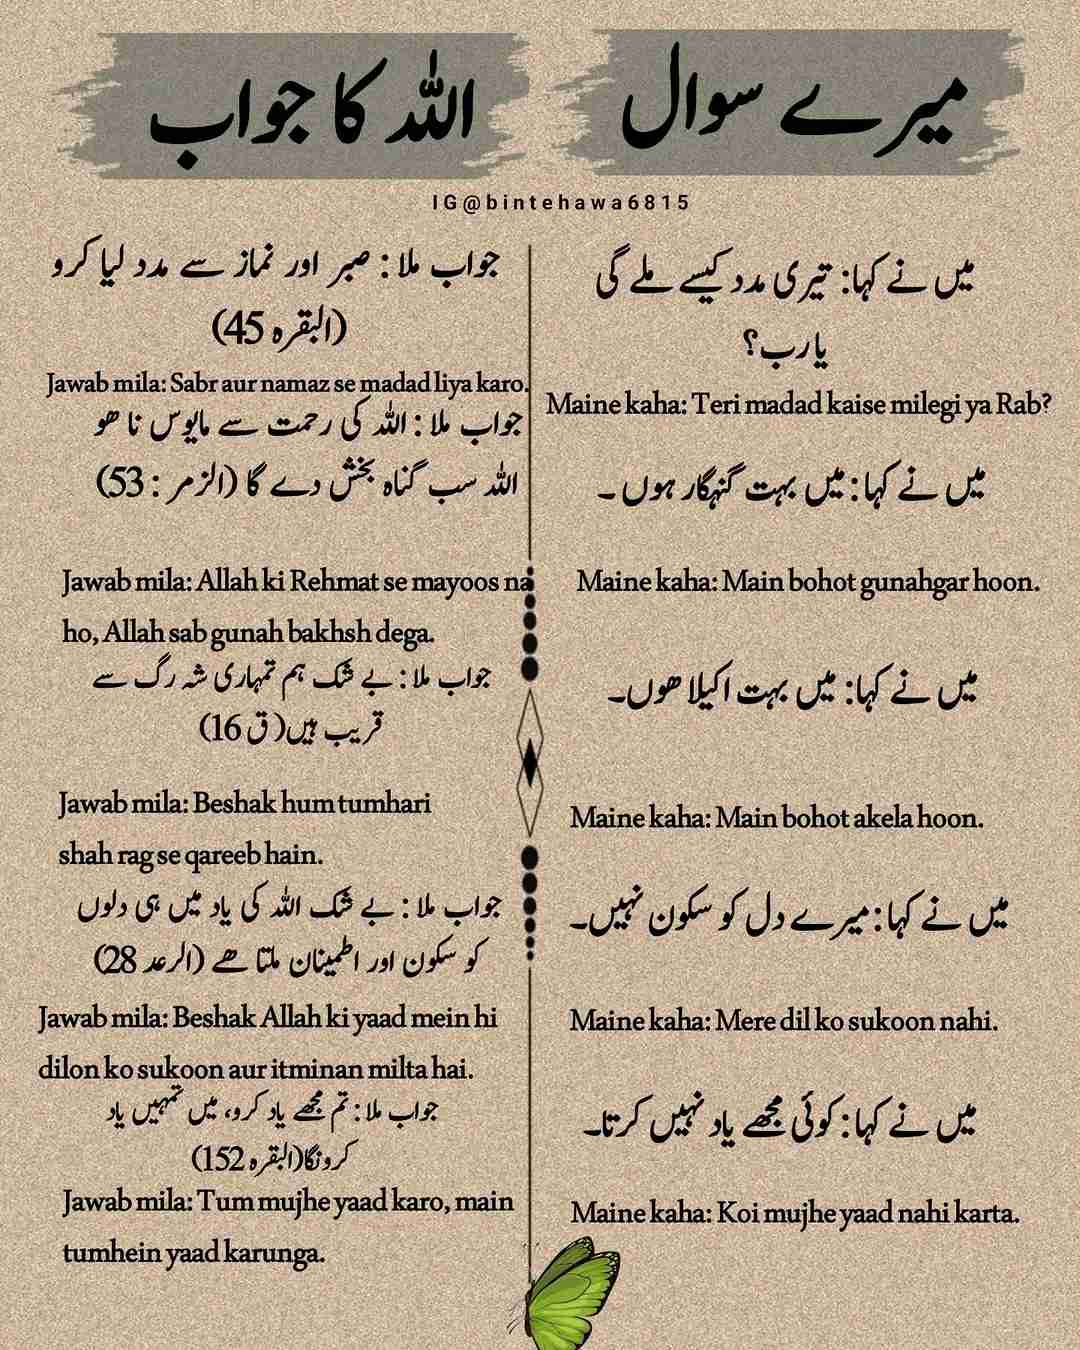 میرے سوال
اللہ کا جواب
IG@bintehawa6815
میں نے کہا: تیری مدد کیسے ملے گی
یارب؟
Maine kaha: Teri madad kaise milegi ya Rab?
جواب ملا : صبر اور نماز سے مدد لیا کرو
(البقرہ 45)
Jawab mila: Sabr aur namaz se madad liya karo.
میں نے کہا: میں بہت گنہگار ہوں ۔
Maine kaha: Main bohot gunahgar hoon.
جواب ملا : اللہ کی رحمت سے مایوس نا ھو
اللہ سب گناہ بخش دے گا (الزمر : 53)
Jawab mila: Allah ki Rehmat se mayoos na
ho, Allah sab gunah bakhsh dega.
میں نے کہا: میں بہت اکیلا ھوں۔
Maine kaha: Main bohot akela hoon.
جواب ملا : بے شک ہم تمہاری شہ رگ سے
قریب ہیں( ق 16)
Jawab mila: Beshak hum tumhari
shah rag se qareeb hain.
میں نے کہا: میرے دل کو سکون نہیں۔
Maine kaha: Mere dil ko sukoon nahi.
جواب ملا : بے شک اللہ کی یاد میں ہی دلوں
کو سکون اور اطمینان ملتا ھے (الرعد 28)
Jawab mila: Beshak Allah ki yaad mein hi
dilon ko sukoon aur itminan milta hai.
میں نے کہا: کوئی مجھے یاد نہیں کرتا۔
Maine kaha: Koi mujhe yaad nahi karta.
جواب ملا : تم مجھے یاد کرو، میں تمہیں یاد
کرونگا(البقرہ 152)
Jawab mila: Tum mujhe yaad karo, main
tumhein yaad karunga.